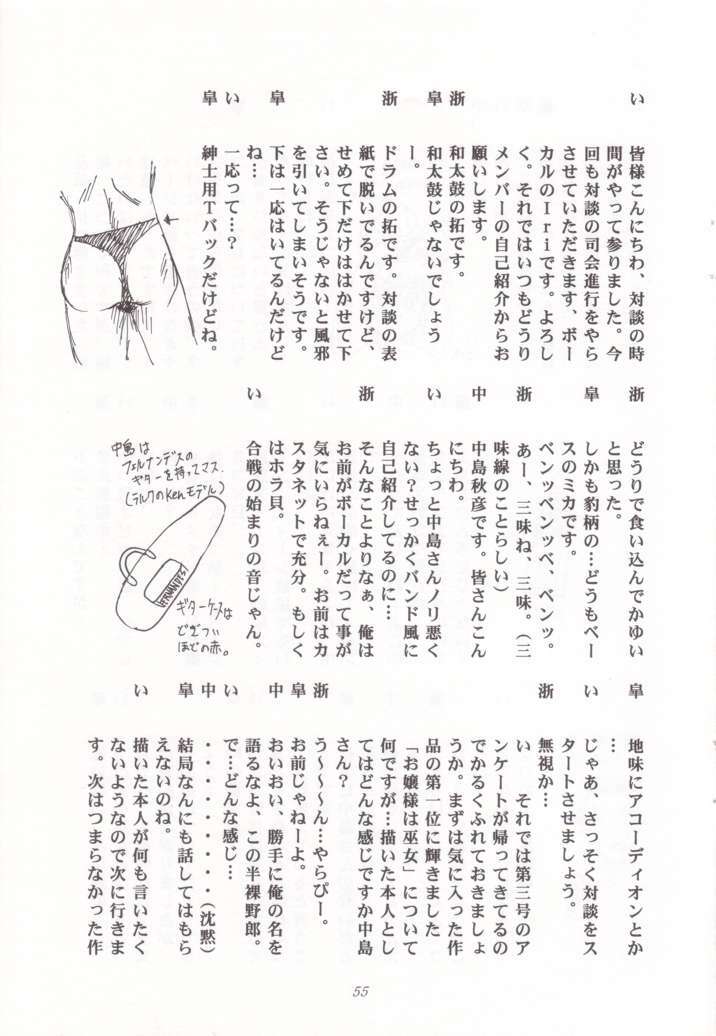 い　皆様こんにちわ、対談の時
間がやって参りました。今
回も対談の司会進行をやら
させていただきます、ボー
カルのIriです。よろし
く。それではいつもどうり
メンバーの自己紹介からお
願いします。
浙　和太鼓の拓です。
皐　和太鼓じゃないでしょう
ー。
浙　ドラムの拓です。対談の表
紙で脱いでるんですけど、
せめて下だけははかせて下
さい。そうじゃないと風邪
を引いてしまいそうです。
皐　下は一応はいてるんだけど
ね…
い　一応って…？
皐　紳士用Tバックだけどね。
浙　どうりで食い込んでかゆい
と思った。
皐　しかも豹柄の…どうもベー
スのミカです。
ベンッベンッベ、ベンッ。
浙　あー、三味ね、三味。（三
味線のことらしい）
中　中島秋彦です。皆さんこん
にちわ。
い　ちょっと中島さんノリ悪く
ない？せっかくバンド風に
自己紹介してるのに…
浙　そんなことよりなぁ、俺は
お前がボーカルだって事が
気にいらねぇー。お前はカ
スタネットで充分。もしく
はホラ貝。
い　合戦の始まりの音じゃん。
中島は
フェルナンデスの
ギターを持ってマス.
(ラルクのKenモデル)
FERNANDES!
ギターケースは
どぎつい
ほどの赤。
皐　地味にアコーディオンとか
…
い　じゃあ、さっそく対談をス
タートさせましょう。
浙　無視か…
い　それでは第三号のア
ンケートが帰ってきてるの
でかるくふれておきましょ
うか。まずは気に入った作
品の第一位に輝きました
「お嬢様は巫女」について
何ですが…描いた本人とし
てはどんな感じですか中島
さん？
浙　う～～～ん…やらぴー。
皐　お前じゃねーよ。
中　おいおい、勝手に俺の名を
語るなよ、この半裸野郎。
い　で…どんな感じ…
中　・・・・・・・・（沈黙）
皐　結局なんにも話してはもら
えないのね。
い　描いた本人が何も言いたく
ないようなので次に行きま
す。次はつまらなかった作
55